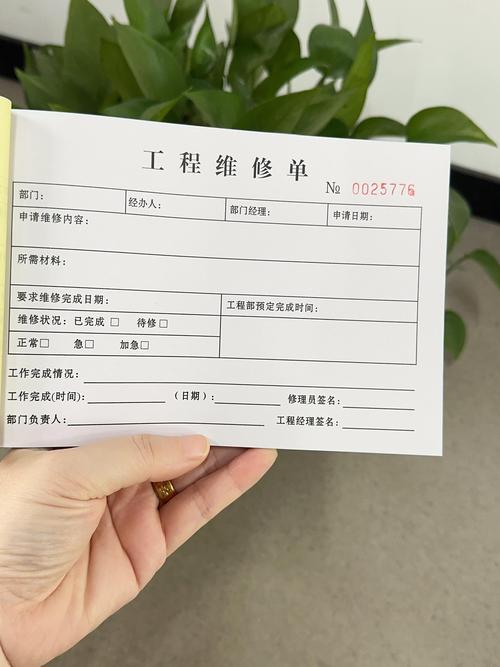 工程维修单
№ 0025776
部门： 经办人： 部门经理： 申请日期：
申请维修内容：
所需材料：
要求维修完成日期： 工程部预定完成时间：
维修状况：已完成 □ 待修 □
正常□ 急□ 加急□
工作完成情况：
工作完成(时间)： （日期）： 修理员签名：
部门负责人： 工程经理签名：